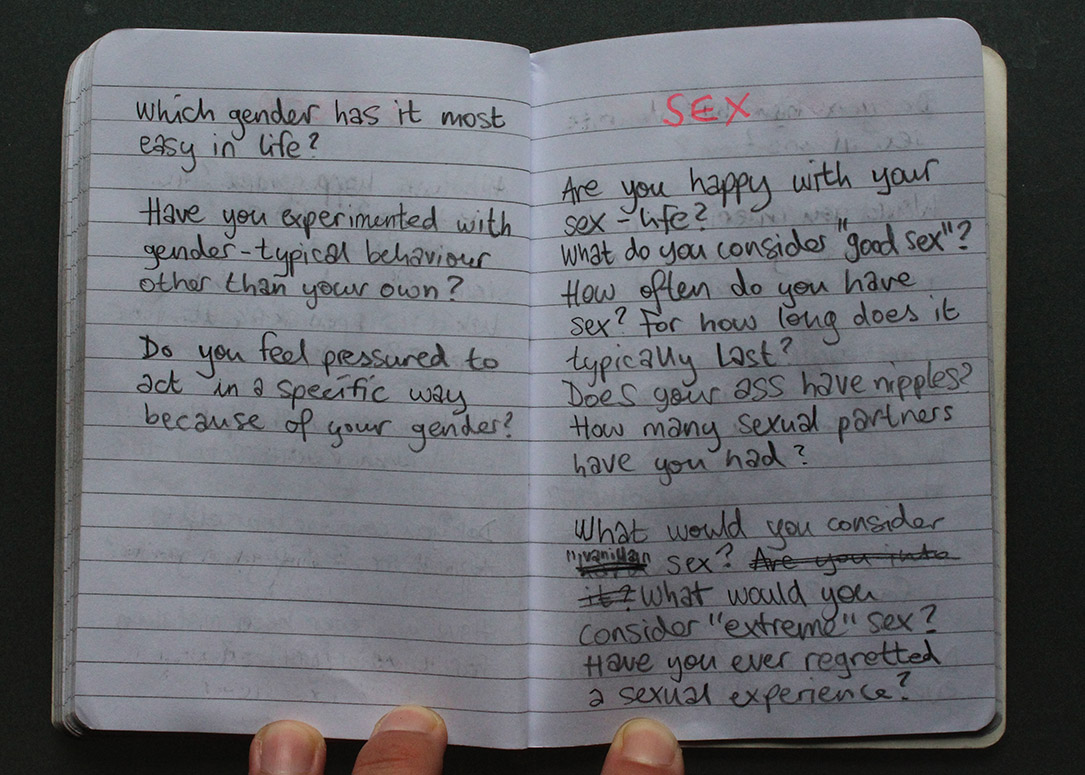 Which gender has it most
easy in life?
Have you experimented with
gender-typical behaviour
other than your own?
Do you feel pressured to
act in a specific way
because of your gender?
SEX
Are you happy with your
sex-life?
What do you consider "good sex"?
How often do you have
sex? For how long does it
typically last?
Does your ass have nipples?
How many sexual partners
have you had?
What would you consider
"vanilla" sex? Are you into
it? What would you
consider "extreme" sex?
Have you ever regretted
a sexual experience?